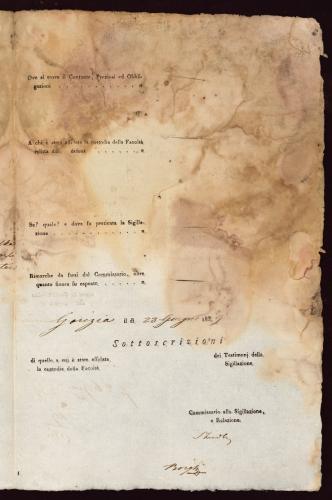 Ove si trova il Contante, Preziosi ed Obbli-
gazioni . . . . . . . . . . . .
A chi è stata affidata la custodia della Facoltà
relitta dal defunt . . . . . . . . .
Se? quale? e dove fu praticata la Sigilla-
zione . . . . . . . . . . . .
Rimarche da farsi dal Commissario, oltre
quanto finora fu esposto . . . . . . .
Gorizia li 23 18
Sottoscrizioni
di quello, a cui è stata affidata
la custodia della Facoltà.
dei Testimonj della
Sigillazione.
Commissario alla Sigillazione,
e Relazione.